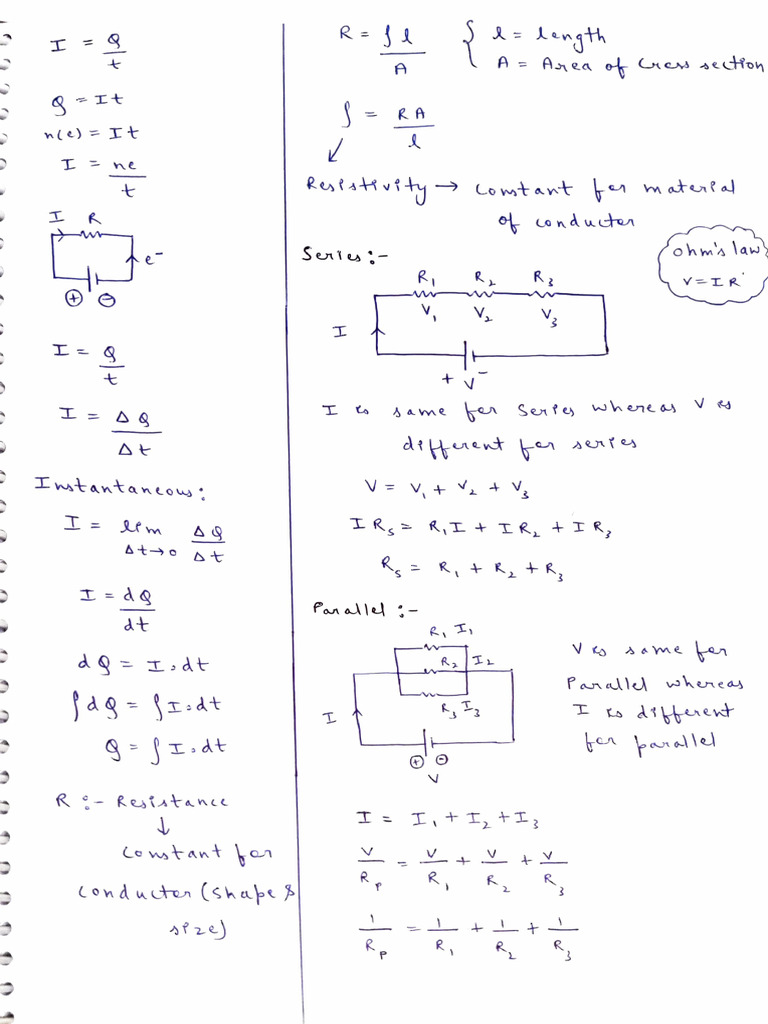 I = Q/t
Q = It
n(e) = It
I = ne/t
I R
e⁻
⊕ ⊖
I = Q/t
I = ΔQ/Δt
Instantaneous:
I = lim Δt→0 ΔQ/Δt
I = dQ/dt
dQ = I.dt
∫dQ = ∫I.dt
Q = ∫I.dt
R :- Resistance
↓
constant for
conductor (shape &
size)
R = ρl/A { l = length
A = Area of cross section
ρ = RA/l
Resistivity → constant for material
of conductor
Series :-
ohm's law
V = IR
R₁ R₂ R₃
V₁ V₂ V₃
I
+ V -
I is same for series whereas V is
different for series
V = V₁ + V₂ + V₃
I Rs = R₁I + IR₂ + IR₃
Rs = R₁ + R₂ + R₃
Parallel :-
R₁ I₁
R₂ I₂
R₃ I₃
I
⊕ ⊖
V
V is same for
Parallel whereas
I is different
for parallel
I = I₁ + I₂ + I₃
V/Rp = V/R₁ + V/R₂ + V/R₃
1/Rp = 1/R₁ + 1/R₂ + 1/R₃